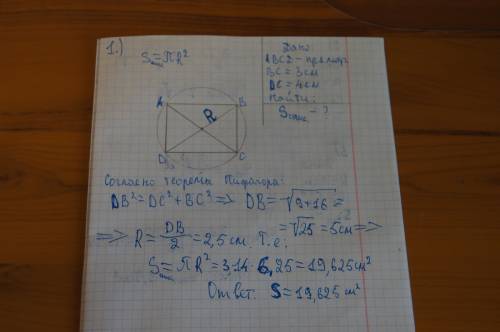 1.)
S = πR²
Дано:
BC = 3см
DC = 4см
Найти:
S - ?
A B
R
D C
Согласно теоремы Пифагора:
DB² = DC² + BC² => DB = √9+16 =
= √25 = 5см =>
=> R = DB/2 = 2,5 см. Т.е.
S = πR² = 3,14 · 6,25 = 19,625 см²
Ответ: S = 19,625 см²